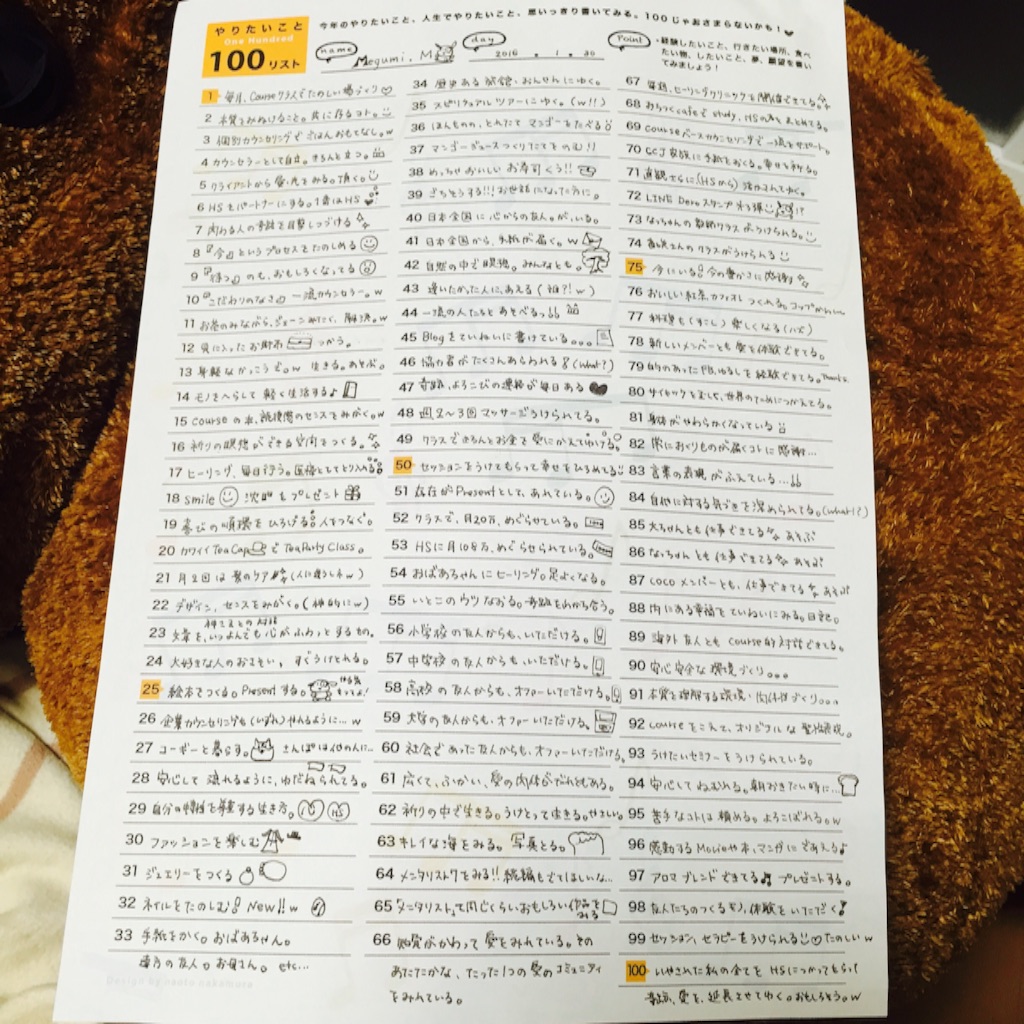 やりたいこと
One Hundred
100リスト
今年のやりたいこと、人生でやりたいこと、思いっきり書いてみる。100じゃおさまらないかも!
name
Megumi. M
day
2016 . 1 . 30
Point
・経験したいこと、行きたい場所、食べたい物、したいこと、夢、願望を書いてみましょう!
1 毎月、Courseクラスでたのしい場づくり♡
2 本質をみぬけること。共に存るコト。
3 個別カウンセリングでごはんおもてなし。w
4 カウンセラーとして自立。きちんと立つ。
5 クライアントから愛・光をみる。頂く。
6 HSをパートナーにする。1番はHS
7 関わる人の奇跡を目撃しつづける
8 『今』というプロセスをたのしめる
9 『待つ』のも、おもしろくなってる
10 『こだわりのなさ』一流カウンセラー。w
11 お茶のみながら、ジェーンみたく、解決。w
12 気に入ったお財布 つかう。
13 身軽なかっこうで。w 生きる。あそぶ。
14 モノをへらして 軽く生活する♪
15 Courseの本、翻訳間のセンスをみがく。w
16 祈りの瞑想ができる空間をつくる。
17 ヒーリング、毎日行う。医療としてとり入れる
18 smile 沈黙をプレゼント
19 喜びの循環をひろげる 人をつなぐ。
20 カワイイ TeaCupでTeaParty Class。
21 月2回は髪のケア (人に違うしネw)
22 デザイン、センスをみがく。(神的にw)
23 文章を、いつよんでも心がふわっとするもの。
24 大好きな人のおさそい、すぐうけとれる。
25 絵本をつくる。Presentする。
26 企業カウンセリングも(いずれ)やれるように…w
27 コーギーと暮らす。 さんぽは他の人に…
28 安心して 流れるように、ゆだねられてる。
29 自分の特性を発揮する生き方。 HS
30 ファッションを楽しむ
31 ジュエリーをつくる
32 ネイルをたのしむ! New!!w
33 手紙をかく。おばあちゃん。
遠方の友人。お母さん。etc…
34 歴史ある 旅館・おんせんにゆく。
35 スピリチュアルツアーにゆく。(w!!)
36 ほんものの、とれたて マンゴーをたべる
37 マンゴージュースつくりたてをのむ!!
38 めっちゃおいしい お寿司くう!!
39 ごちそうする!!!お世話になった方に。
40 日本全国に心からの友人。が、いる。
41 日本全国から、手紙が届く。w
42 自然の中で瞑想。みんなとも。
43 逢いたかった人に、あえる(誰?!w)
44 一流の人たちとあそべるっ
45 Blogをていねいに書けている。。。
46 協力者がたくさんあらわれる!(what!?)
47 奇跡、よろこびの連絡が毎日ある
48 週2〜3回マッサージうけられてる。
49 クラスできちんとお金を愛にかえてゆける
50 セッションをうけてもらって幸せをひろめてる
51 存在がPresentとして、あれている。
52 クラスで、月20万、めぐらせている。
53 HSに月108万、めぐらせられている。
54 おばあちゃんにヒーリング。足よくなる。
55 いとこのウツなおる。奇跡をわかち合う。
56 小学校の友人からも、いただける。
57 中学校の友人からも、いただける。
58 高校の友人からも、オファーいただける。
59 大学の友人からも、オファーいただける。
60 社会であった友人からも、オファーいただける。
61 広くて、ふかい、愛の肉体がだれともある。
62 祈りの中で生きる。うけとって生きる。やさしい。
63 キレイな海をみる。写真とる。
64 メンタリスト7をみる!!続編もでてほしいな…
65 『メンタリスト』と同じくらいおもしろい作品をみる
66 知覚がかわって 愛をみれている。その
あたたかな、たった1つの愛のコミュニティ
をみれている。
67 毎韻、ヒーリングクリニックを開催できてる。
68 おちつくcafeでstudy, HSの声をまとめてる。
69 Courseベースカウンセリングで一流をサポート。
70 CCJ家族に手紙をおくる。幸せを祈る。
71 直観さらに(HSから)活かされてゆく。
72 LINE Deroスタンプ 第3弾 !?
73 なっちゃんの数秘クラスようけられる。
74 さんのクラスがうけられる
75 今にいる! 今の豊かさに感謝
76 おいしい紅茶、カフェオレつくれる。コップかわいい
77 料理も(すこし)楽しくなる(ハズ)
78 新しいメンバーとも愛を体験できてる。
79 的のあったFB、ゆるしを経験できてる。Thanks
80 サイキックをましで、世界のためにつかえてる。
81 身体がやわらかくなっている
82 常におくりものが届くコトに感謝…
83 言葉の表現がふえている…
84 自他に対する気づきを深められてる。(what!?)
85 大ちゃんとも仕事できてる あそぶ
86 なっちゃんとも仕事できてる あそぶ
87 COCOメンバーとも、仕事できてる あそぶ
88 内にある幸福をていねいにみる。日記。
89 海外友人ともcourse的対話できる。
90 安心安全な環境づくり。。。
91 本質を理解する環境・肉体づくり。。。
92 courseをこえて、オリジナルな聖なる表現。
93 うけたいセミナーをうけられている。
94 安心してねむれる。朝おきたい時に…
95 苦手なコトは頼める。よろこばれるw
96 感動するMovieや本、マンガにであえる♪
97 アロマブレンドできてる♪ プレゼントする。
98 友人たちのつくるモノ、体験をいただく!
99 セッション、セラピーをうけられる♡たのしいw
100 いやされた私の全てをHSにつかってもらう!
奇跡、愛を、延長させてゆく。おもしろそう。w
Design by naoto nakamura